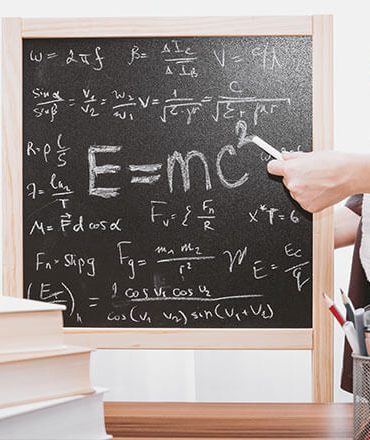 ω = 2πf β= ΔI_C / Δ I_B V = c/λ
sinα / sinβ = V₁ / V₂ = W₂ / W₁ V = 1 / √ε·μr = C / √εr μr
R=ρ l/S
E=mc²
λ = ln2 / T
M = F⃗ d cosα F_v = { F_n / R x*T=6
F_n = Shρg F_g = m₁ m₂ / r² E = E_c / q
2 cos v₁ cos v₂ / cos(v₁ v₂) sin(v₁+v₂)